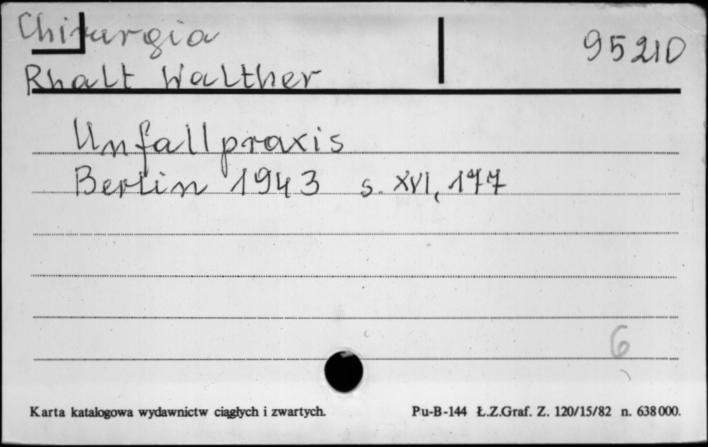 Chirurgia
95210
Rhalt Walther
Unfallpraxis
Berlin 1943 s. XVI, 177
6
Karta katalogowa wydawnictw ciągłych i zwartych.
Pu-B-144 Ł.Z.Graf. Z. 120/15/82 n. 638000.